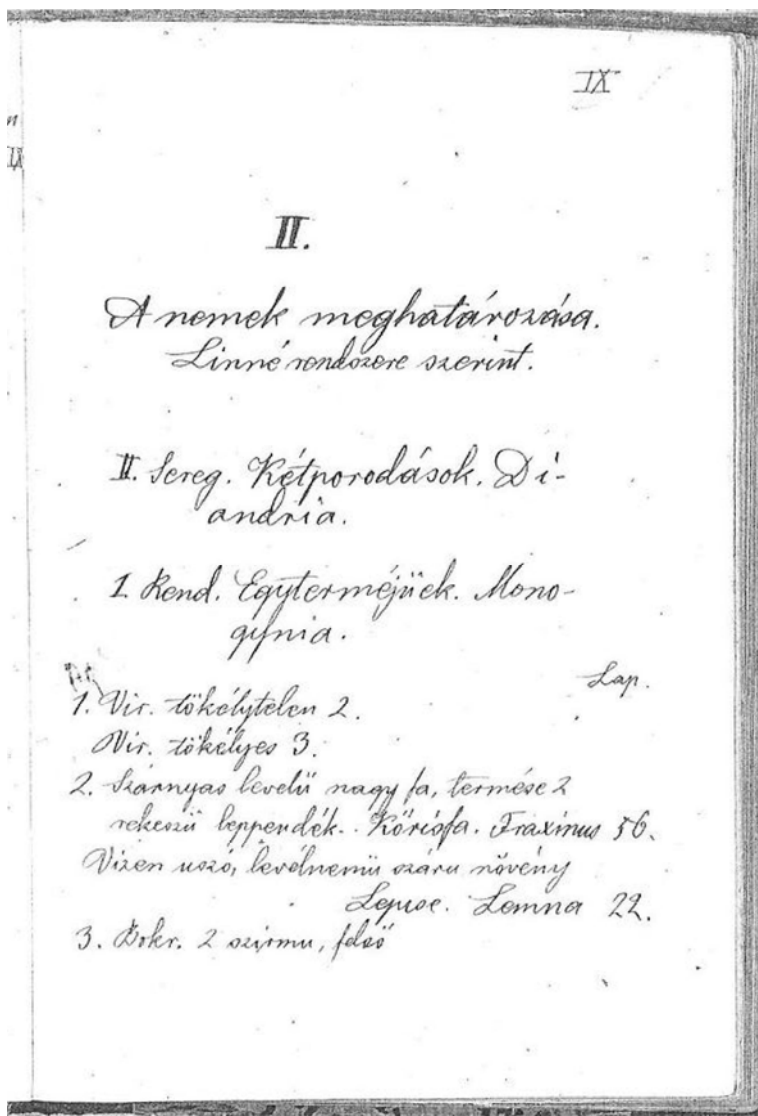 IX
II.
A nemek meghatározása.
Linné rendszere szerint.
II. Sereg. Kétporodások. Di-
andria.
1. Rend. Egyterméjüek. Mono-
gynia.
Lap.
1. Vir. tökélytelen 2.
Vir. tökélyes 3.
2. Szárnyas levelü nagy fa, termése 2
rekeszü leppendék. Kőrisfa. Fraxinus 56.
Vizen uszó, levélnemü száru növény
Lepse. Lemna 22.
3. Bokr. 2 szirmu, felső